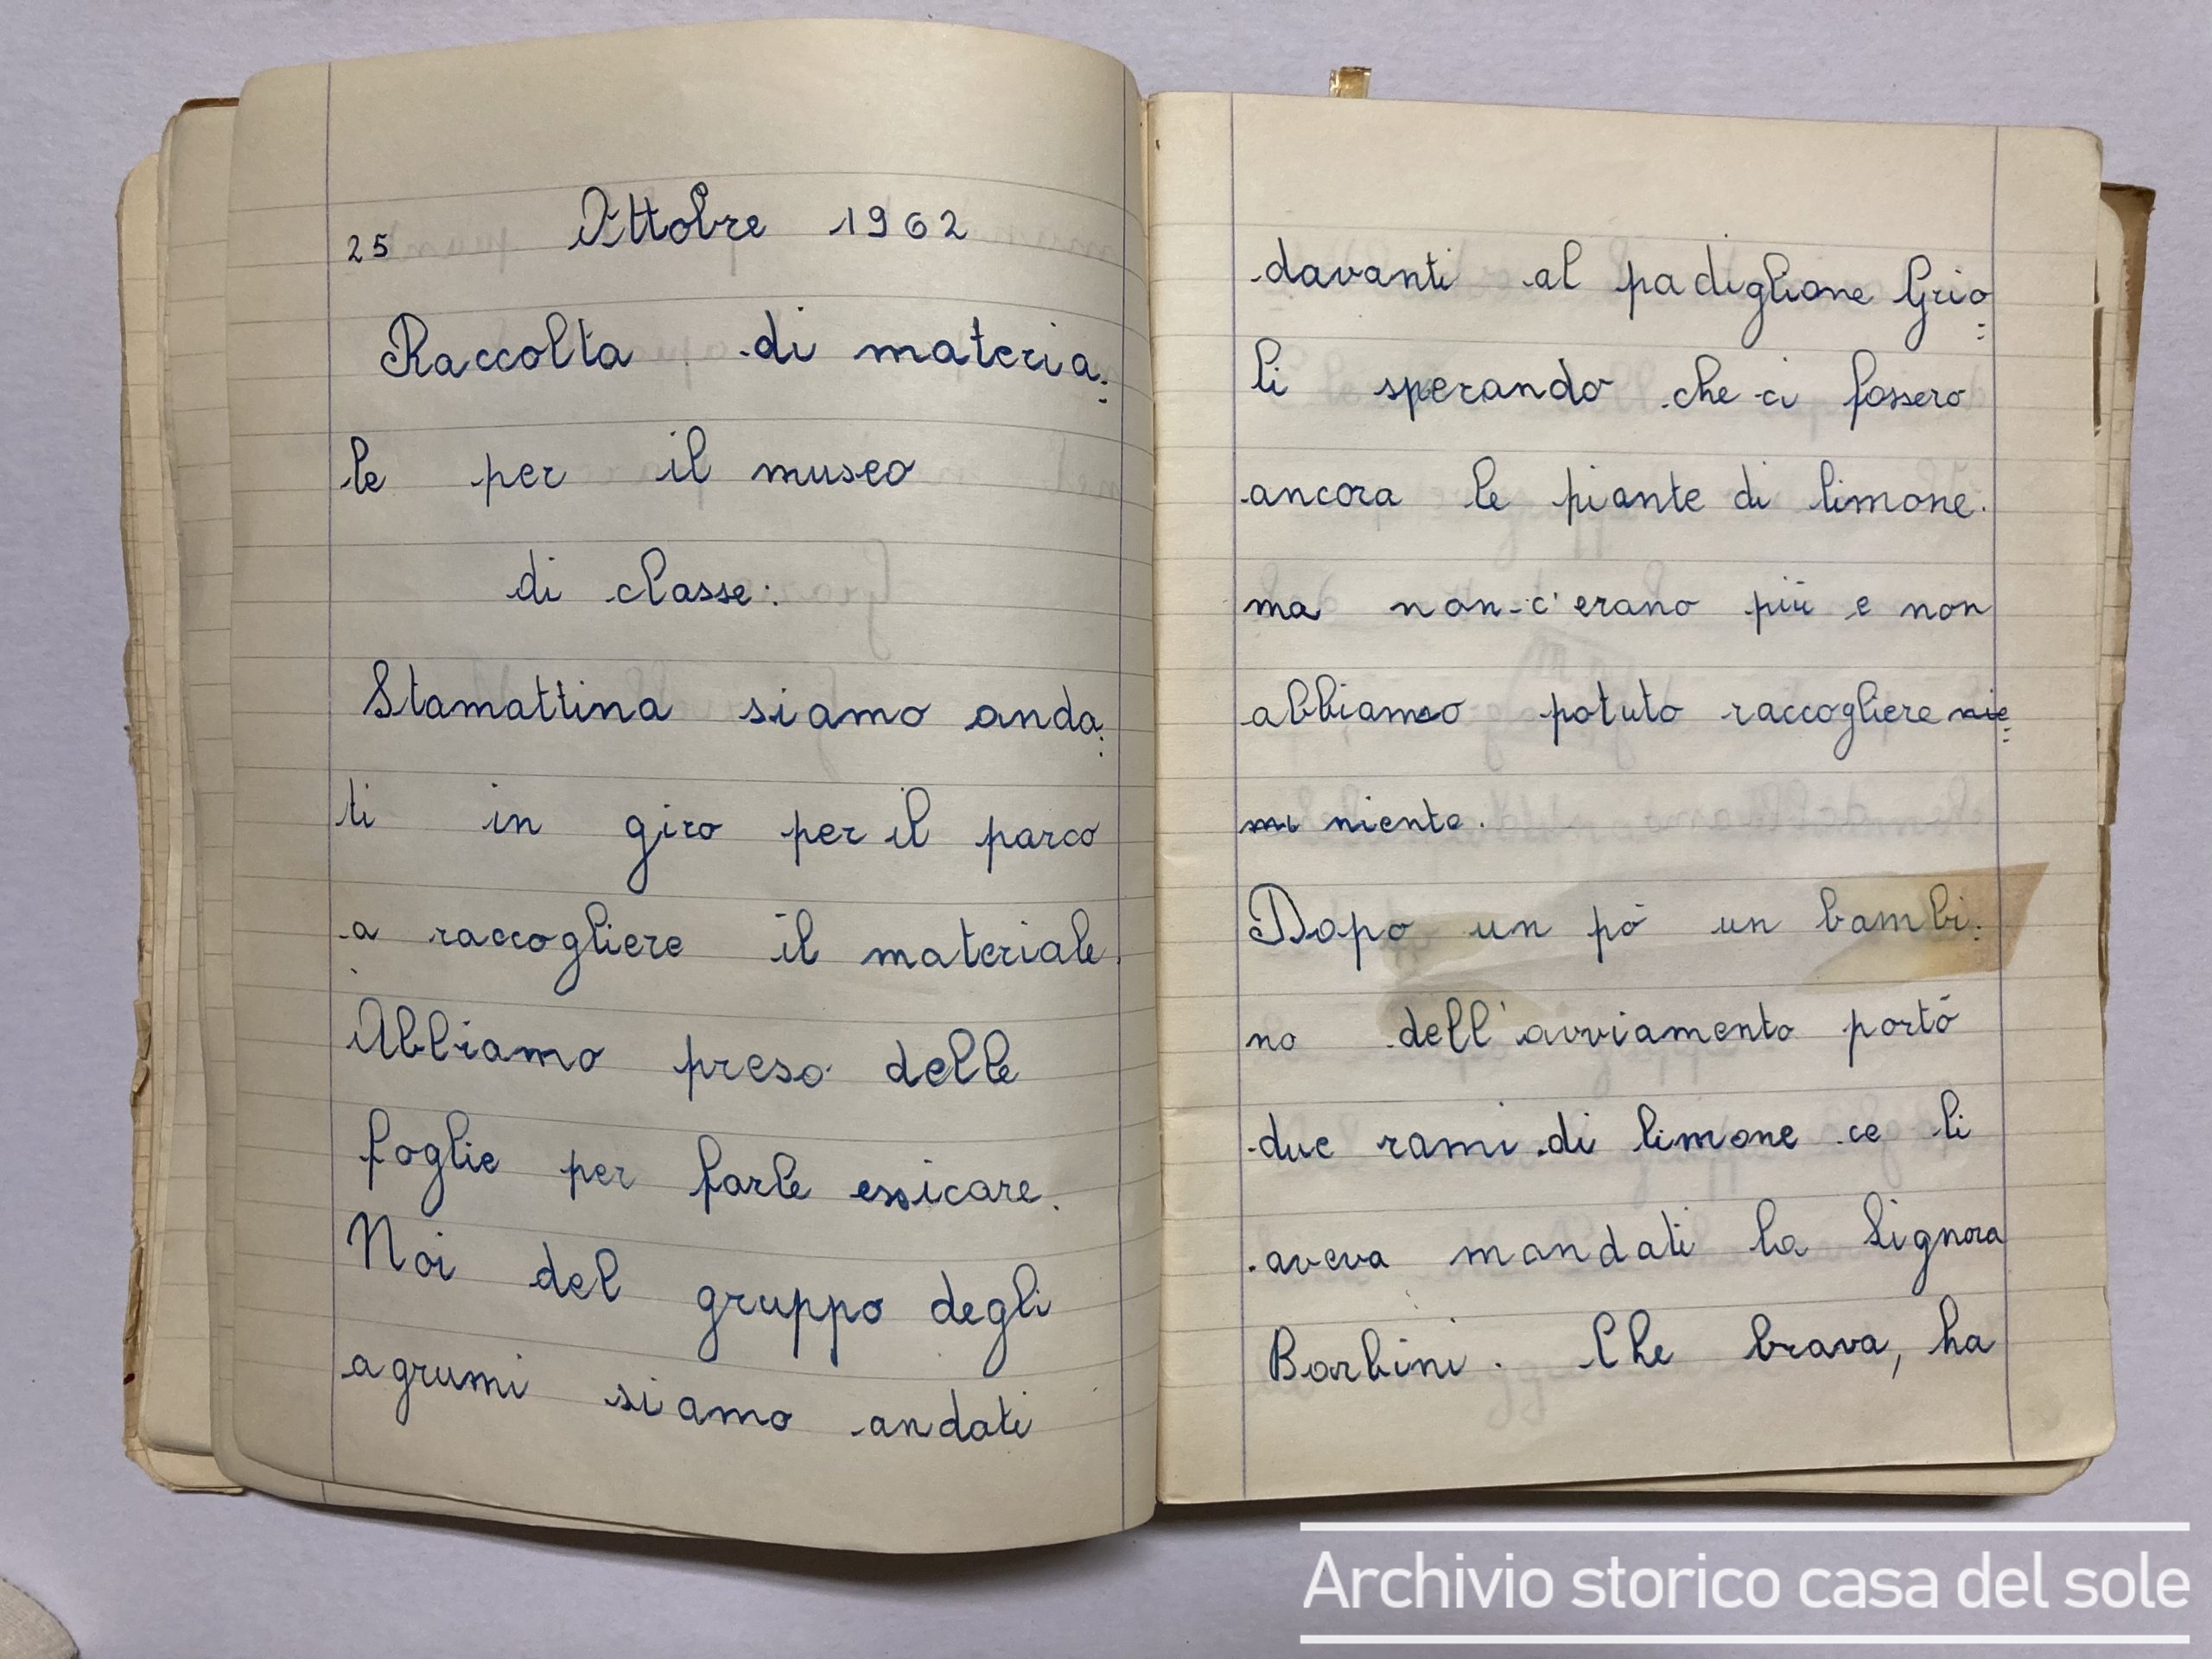 25 Ottobre 1962
Raccolta di materia=
le per il museo
di classe:
Stamattina siamo anda=
ti in giro per il parco
a raccogliere il materiale.
Abbiamo preso delle
foglie per farle essicare.
Noi del gruppo degli
agrumi siamo andati
davanti al padiglione Grio=
li sperando che ci fossero
ancora le piante di limone.
ma non c'erano più e non
abbiamo potuto raccogliere nie=
niente.
Dopo un pò un bambi=
no dell'avviamento portò
due rami di limone ce li
aveva mandati la Signora
Barbini. Che brava, ha
Archivio storico casa del sole